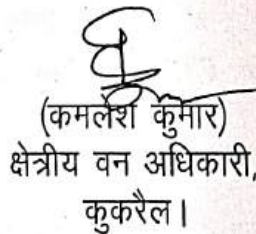 (कमलेश कुमार)
क्षेत्रीय वन अधिकारी,
कुकरैल।